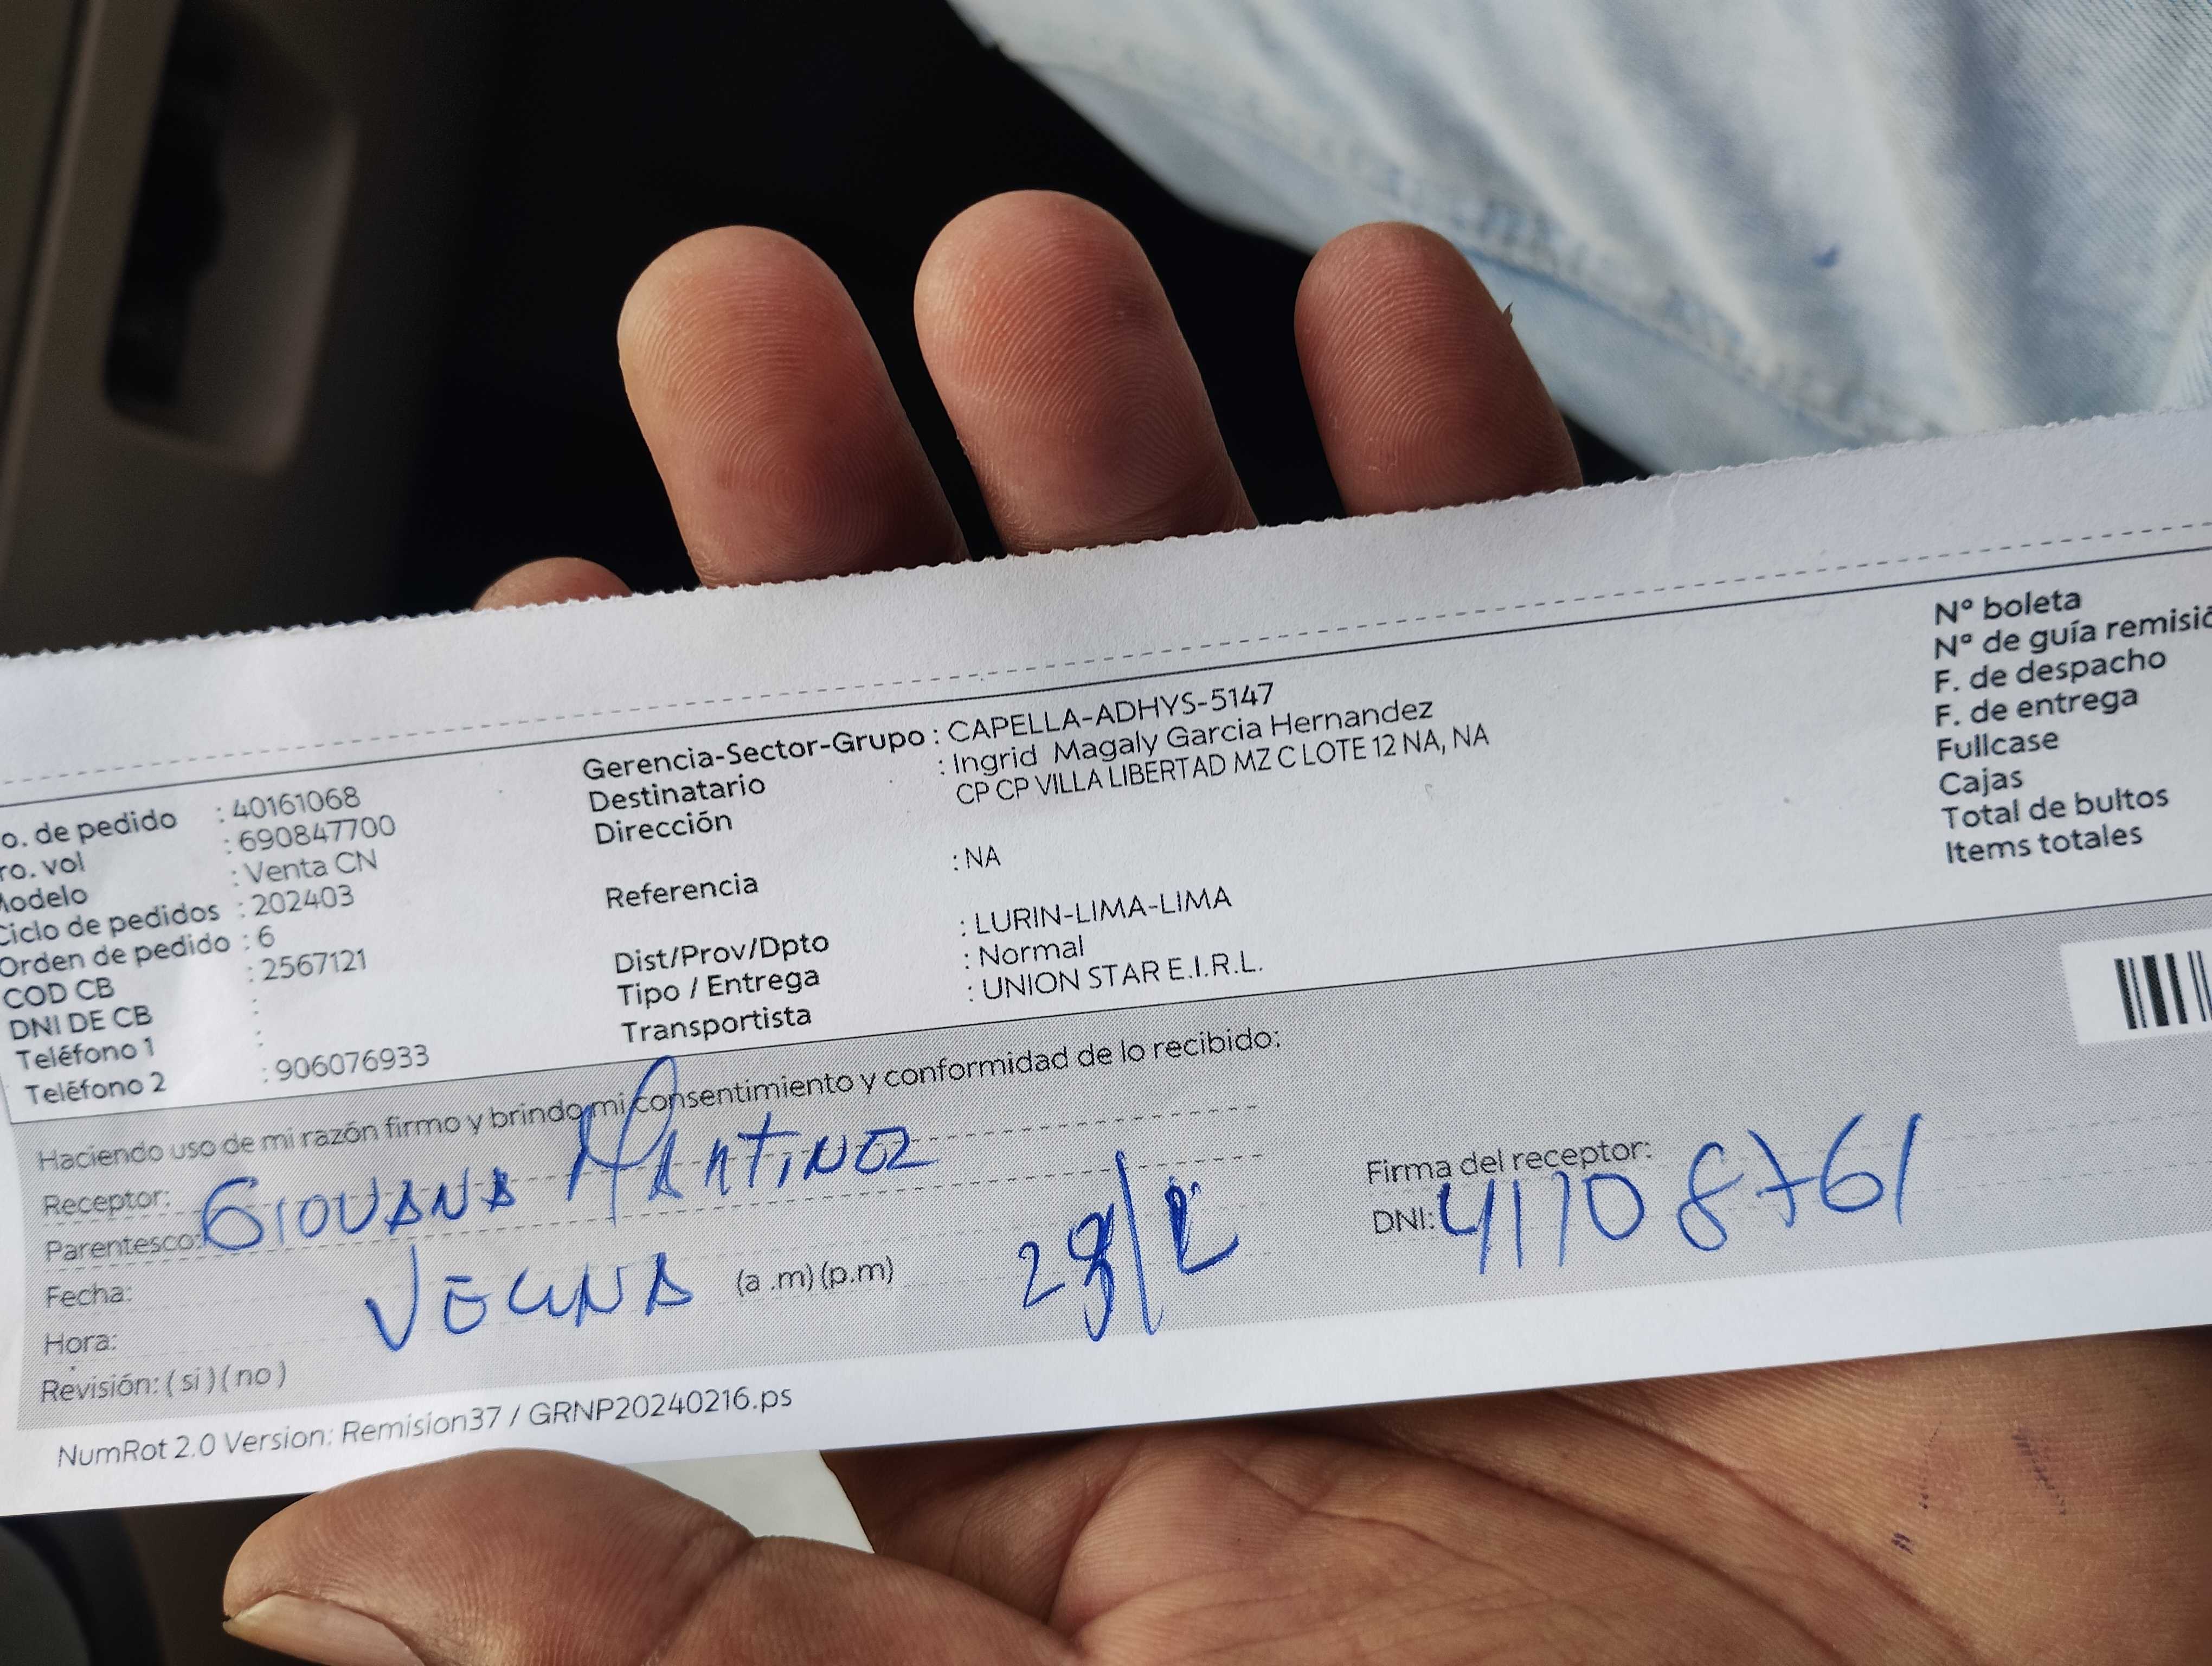 o. de pedido : 40161068
ro. vol : 690847700
Modelo : Venta CN
Ciclo de pedidos : 202403
Orden de pedido : 6
COD CB : 2567121
DNI DE CB :
Teléfono 1 :
Teléfono 2 : 906076933
Gerencia-Sector-Grupo : CAPELLA-ADHYS-5147
Destinatario : Ingrid Magaly Garcia Hernandez
Dirección CP CP VILLA LIBERTAD MZ C LOTE 12 NA, NA
Referencia : NA
Dist/Prov/Dpto : LURIN-LIMA-LIMA
Tipo / Entrega : Normal
Transportista : UNION STAR E.I.R.L.
N° boleta
N° de guía remisió
F. de despacho
F. de entrega
Fullcase
Cajas
Total de bultos
Items totales
Haciendo uso de mi razón firmo y brindo mi consentimiento y conformidad de lo recibido:
Receptor: GIOVANA MARTINEZ
Parentesco: VECINA
Fecha: 29/2
Hora: (a .m) (p.m)
Revisión: ( si ) ( no )
Firma del receptor:
DNI: 41708761
NumRot 2.0 Version: Remision37 / GRNP20240216.ps